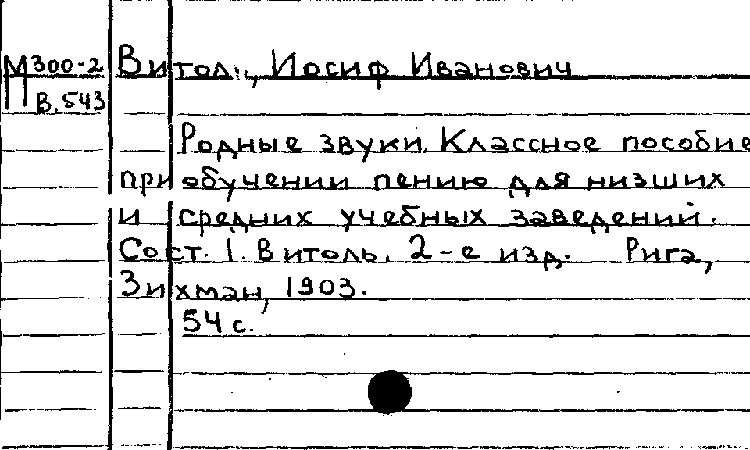 М300-2
В.543
Витол., Иосиф Иванович
Родные звуки. Классное пособие
при обучении пению для низших
и средних учебных заведений.
Сост. I. Витоль. 2-е изд. Рига,
Зихман, 1903.
54 с.